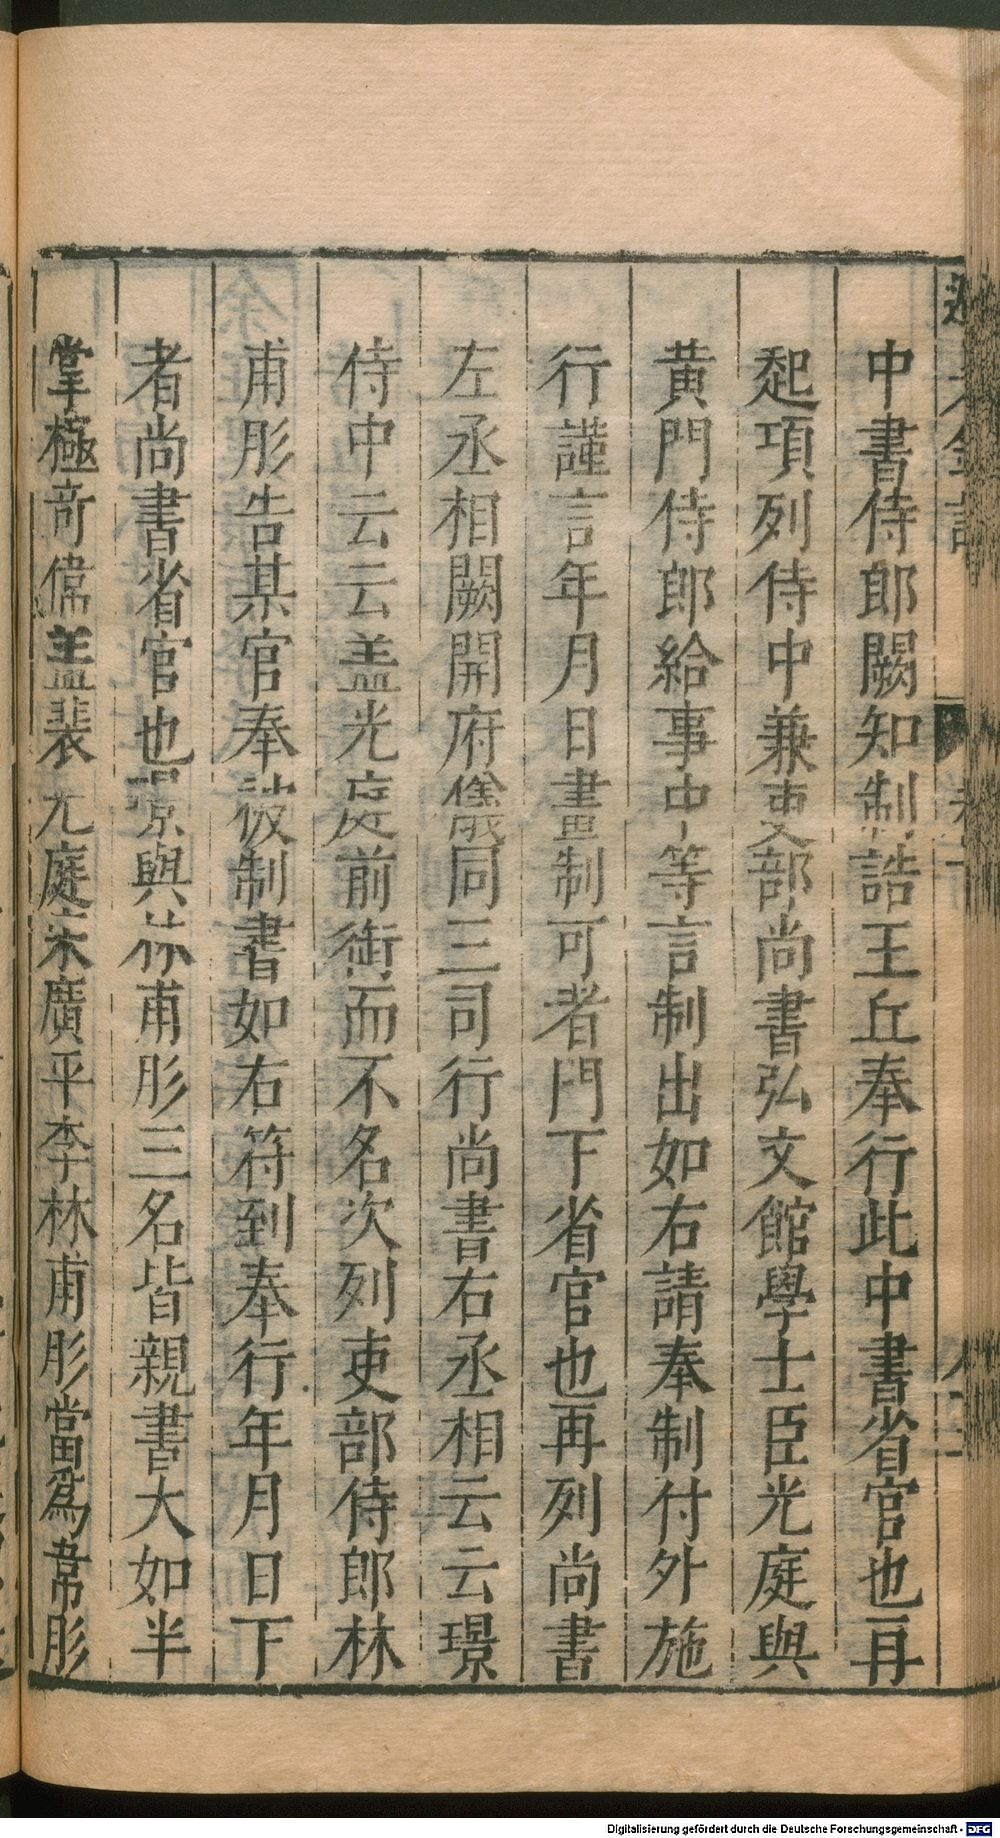 中書侍郎闕知制誥王丘奉行此中書省官也再
起項列侍中兼吏部尚書弘文館學士臣光庭與
黃門侍郎給事中等言制出如右請奉制付外施
行謹言年月日畫制可者門下省官也再列尚書
左丞相闕開府儀同三司行尚書右丞相云云璟
侍中云云盖光庭前銜而不名次列吏部侍郎林
甫彤告某官奉被制書如右符到奉行年月日下
者尚書省官也璟與林甫彤三名皆親書大如半
掌極奇偉盖裴光庭宋廣平李林甫彤當爲韋彤
Digitalisierung gefördert durch die Deutsche Forschungsgemeinschaft - DFG